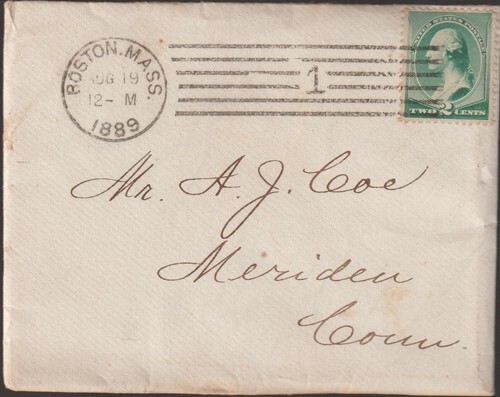 BOSTON. MASS.
AUG 19
12- M
1889
1
UNITED STATES POSTAGE
TWO 2 CENTS
Mr. A. J. Coe
Meriden
Conn.